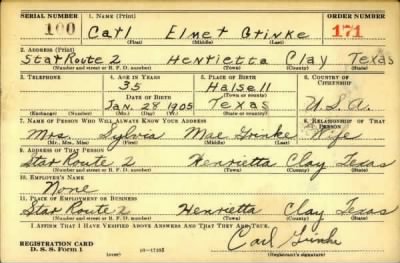 SERIAL NUMBER 1. NAME (Print) ORDER NUMBER
100 Carl Elmer Grinke 171
(First) (Middle) (Last)
2. ADDRESS (Print)
Star Route 2 Henrietta Clay Texas
(Number and street or R. F. D. number) (Town) (County) (State)
3. TELEPHONE 4. AGE IN YEARS 5. PLACE OF BIRTH 6. COUNTRY OF CITIZENSHIP
35 Halsell
DATE OF BIRTH (Town or county)
Jan. 28 1905 Texas U.S.A.
(Exchange) (Number) (Mo.) (Day) (Yr.) (State or country)
7. NAME OF PERSON WHO WILL ALWAYS KNOW YOUR ADDRESS 8. RELATIONSHIP OF THAT PERSON
Mrs. Sylvia Mae Grinke Wife
(Mr., Mrs., Miss) (First) (Middle) (Last)
9. ADDRESS OF THAT PERSON
Star Route 2 Henrietta Clay Texas
(Number and street or R. F. D. number) (Town) (County) (State)
10. EMPLOYER'S NAME
None
11. PLACE OF EMPLOYMENT OR BUSINESS
Star Route 2 Henrietta Clay Texas
(Number and street or R. F. D. number) (Town) (County) (State)
I AFFIRM THAT I HAVE VERIFIED ABOVE ANSWERS AND THAT THEY ARE TRUE.
REGISTRATION CARD
D. S. S. FORM 1 (over) Carl Grinke